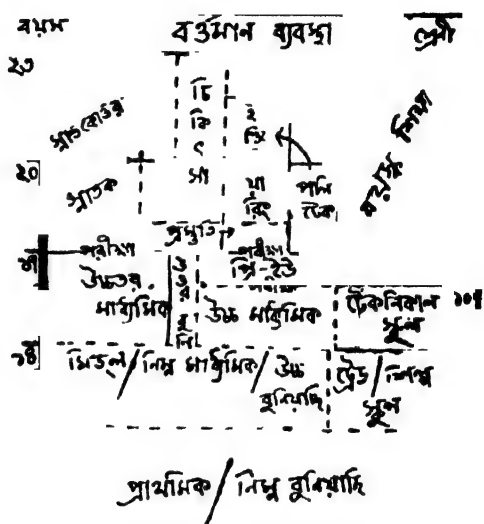 বয়স বর্তমান ব্যবস্থা শ্রেণী
২৩
চিকিৎসা
ইঞ্জিনিয়ারিং
স্নাতকোত্তর
বয়স্ক শিক্ষা
২০
স্নাতক
পলিটেক
প্রস্তুতি
পরীক্ষা পরীক্ষা
প্রি-ইউ
উচ্চতর মাধ্যমিক
উত্তর বুনি
উচ্চ মাধ্যমিক
টেকনিকাল স্কুল
১৪
মিডল/নিম্ন মাধ্যমিক/উচ্চ বুনিয়াদি
ট্রেড/শিল্প স্কুল
প্রাথমিক/নিম্ন বুনিয়াদি